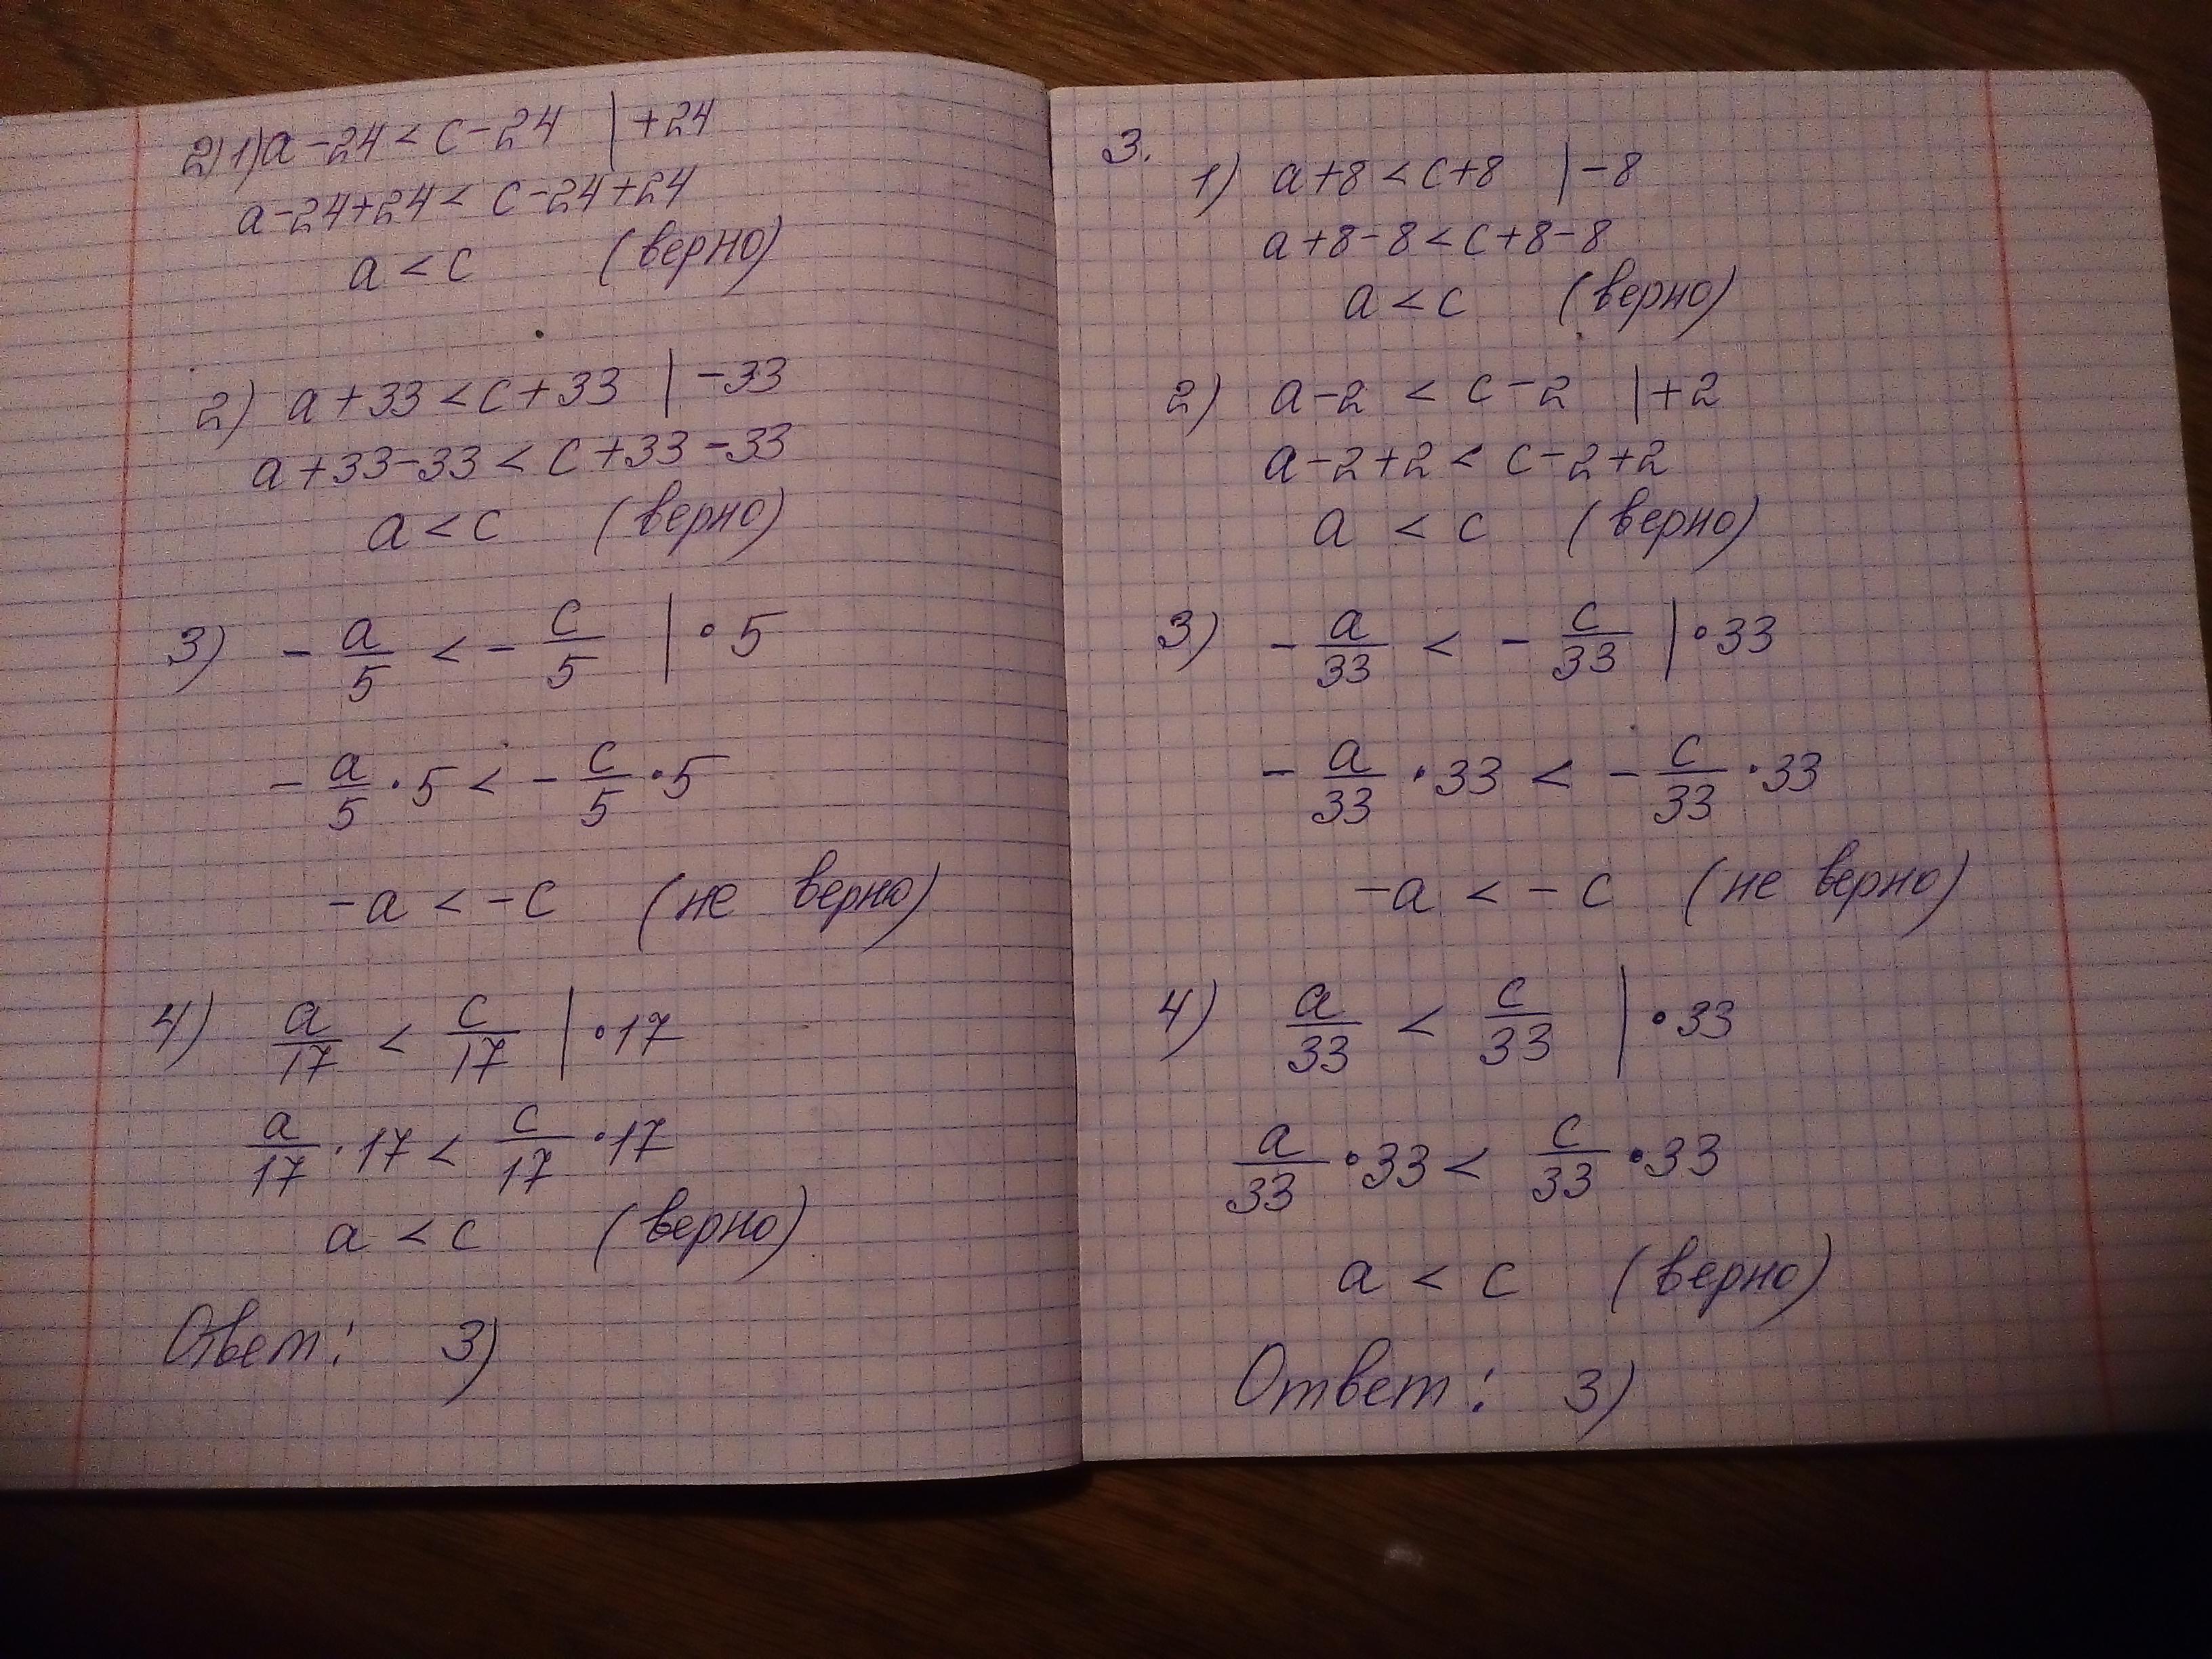 2) 1) a - 24 < c - 24 | + 24
a - 24 + 24 < c - 24 + 24
a < c (верно)
2) a + 33 < c + 33 | - 33
a + 33 - 33 < c + 33 - 33
a < c (верно)
3) - a/5 < - c/5 | · 5
- a/5 · 5 < - c/5 · 5
- a < - c (не верно)
4) a/17 < c/17 | · 17
a/17 · 17 < c/17 · 17
a < c (верно)
Ответ: 3)
3.
1) a + 8 < c + 8 | - 8
a + 8 - 8 < c + 8 - 8
a < c (верно)
2) a - 2 < c - 2 | + 2
a - 2 + 2 < c - 2 + 2
a < c (верно)
3) - a/33 < - c/33 | · 33
- a/33 · 33 < - c/33 · 33
- a < - c (не верно)
4) a/33 < c/33 | · 33
a/33 · 33 < c/33 · 33
a < c (верно)
Ответ: 3)